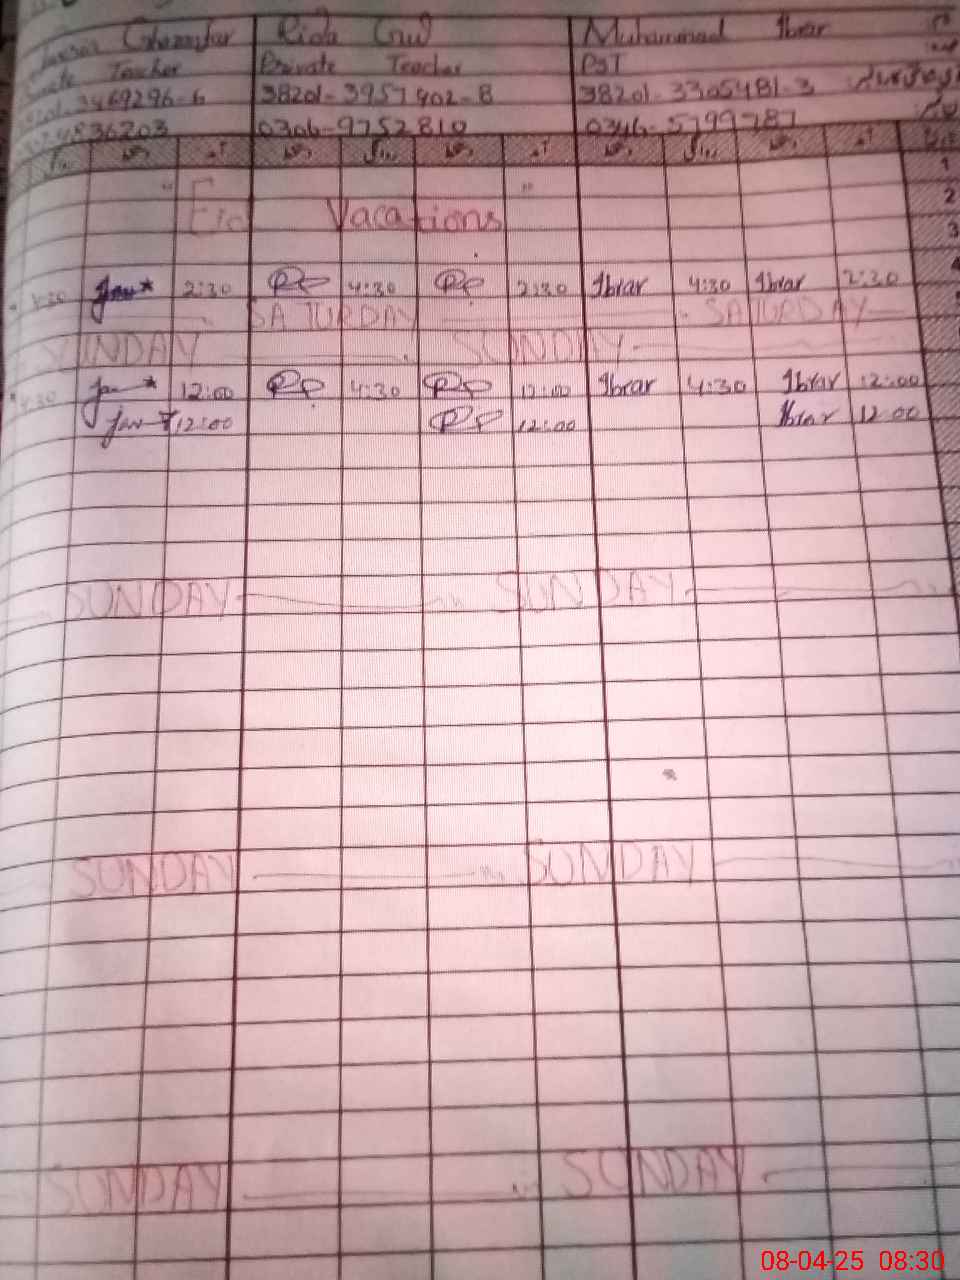 Ghazanfar Rida Gul Muhammad Ibrar
Teacher Private Teacher PST
3469296-6 38201-3957902-8 38201-3305481-3
4836203 0306-9752810 0346-5799787
آمد
1
" Eid Vacations "
2
3
4
4:30 Jan 2:30 RP 4:30 RP 2:30 Ibrar 4:30 Ibrar 2:30
SATURDAY SATURDAY
SUNDAY SUNDAY
4:30 Jan 12:00 RP 4:30 RP 12:00 Ibrar 4:30 Ibrar 12:00
Jan 12:00 RP 12:00 Ibrar 12:00
SUNDAY SUNDAY
SUNDAY SUNDAY
SUNDAY SUNDAY
08-04-25 08:30